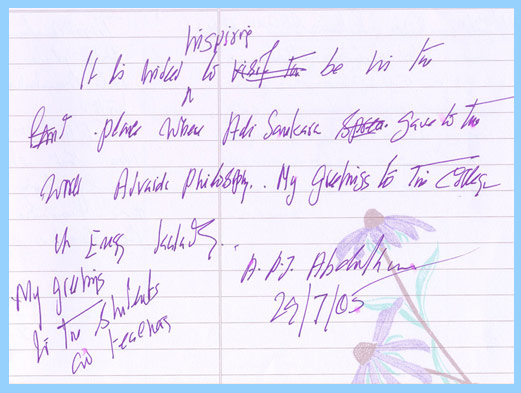 inspiring
It is indeed to visit the be in the
place where Adi Sankara gave to the
world Advaida Philosophy.. My greetings to the College
in Engg
My greetings
to the students
and teachers
A. P. J. Abdul Kalam
29/7/05